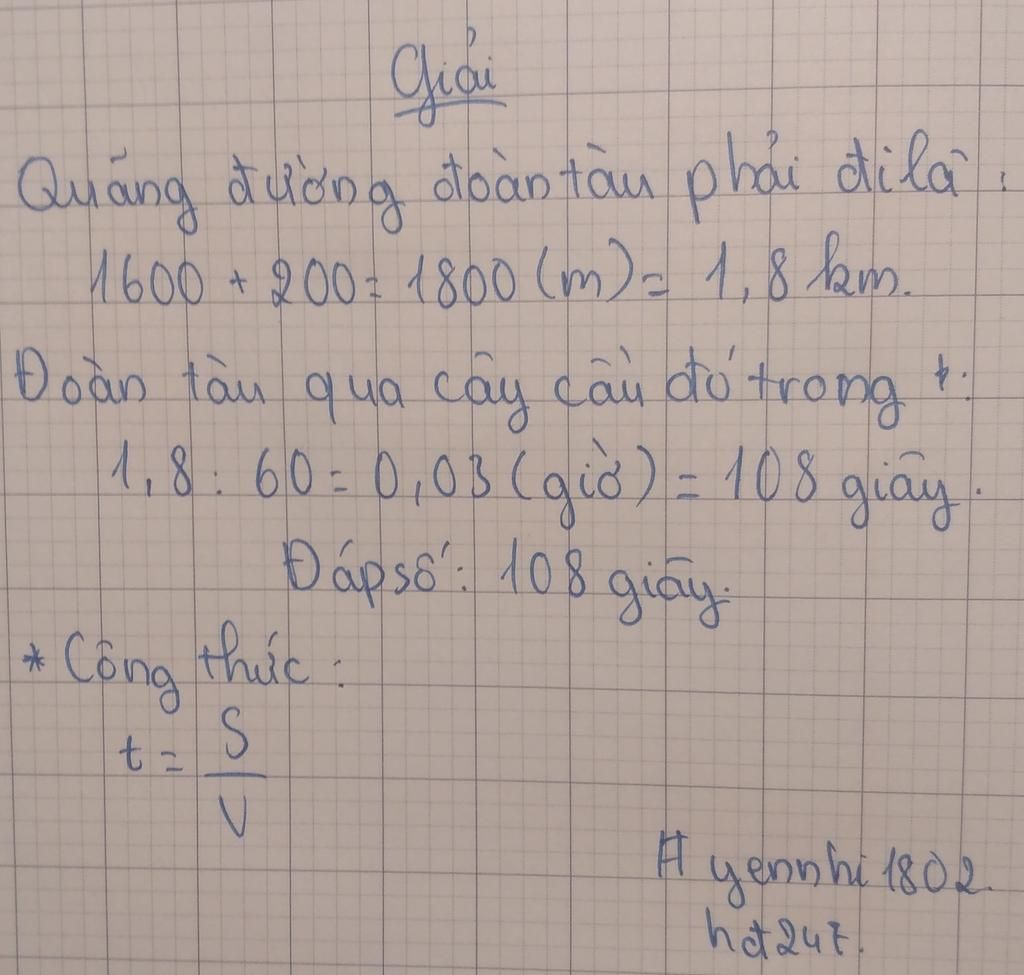 Giải
Quãng đường đoàn tàu phải đi là:
1600 + 200 = 1800 (m) = 1,8 km.
Đoàn tàu qua cây cầu đó trong t:
1,8 : 60 = 0,03 (giờ) = 108 giây.
Đáp số: 108 giây.
* Công thức:
t = S
V
# yennhi 1802.
hđ247.